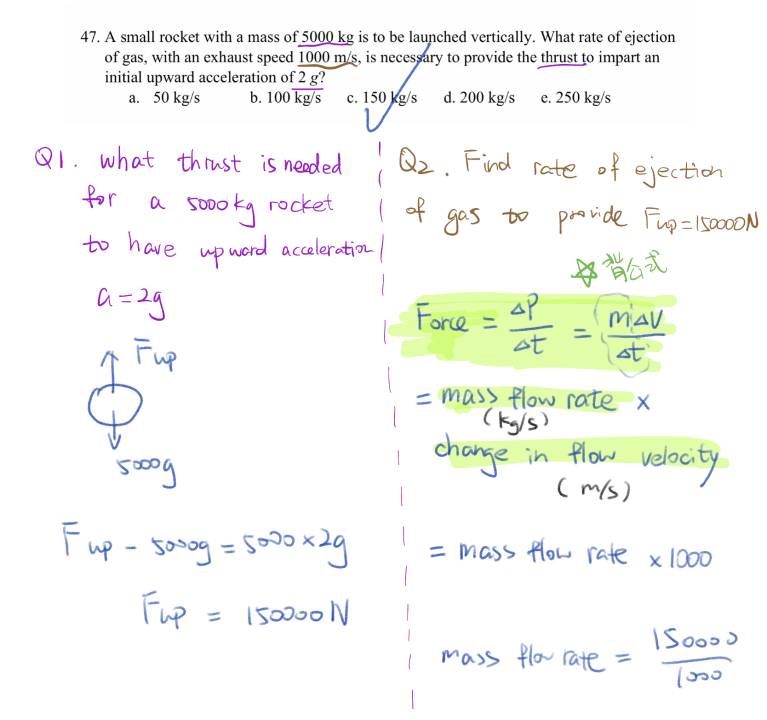 47. A small rocket with a mass of 5000 kg is to be launched vertically. What rate of ejection
of gas, with an exhaust speed 1000 m/s, is necessary to provide the thrust to impart an
initial upward acceleration of 2 g?
a. 50 kg/s b. 100 kg/s c. 150 kg/s d. 200 kg/s e. 250 kg/s
Q1. what thrust is needed
for a 5000kg rocket
to have upward acceleration
a = 2g
Fup
5000g
Fup - 5000g = 5000 × 2g
Fup = 150000 N
Q2. Find rate of ejection
of gas to provide Fup = 150000N
☆ 背公式
Force = ΔP/Δt = mΔV/Δt
= mass flow rate ×
(kg/s)
change in flow velocity
(m/s)
= mass flow rate × 1000
mass flow rate = 150000/1000